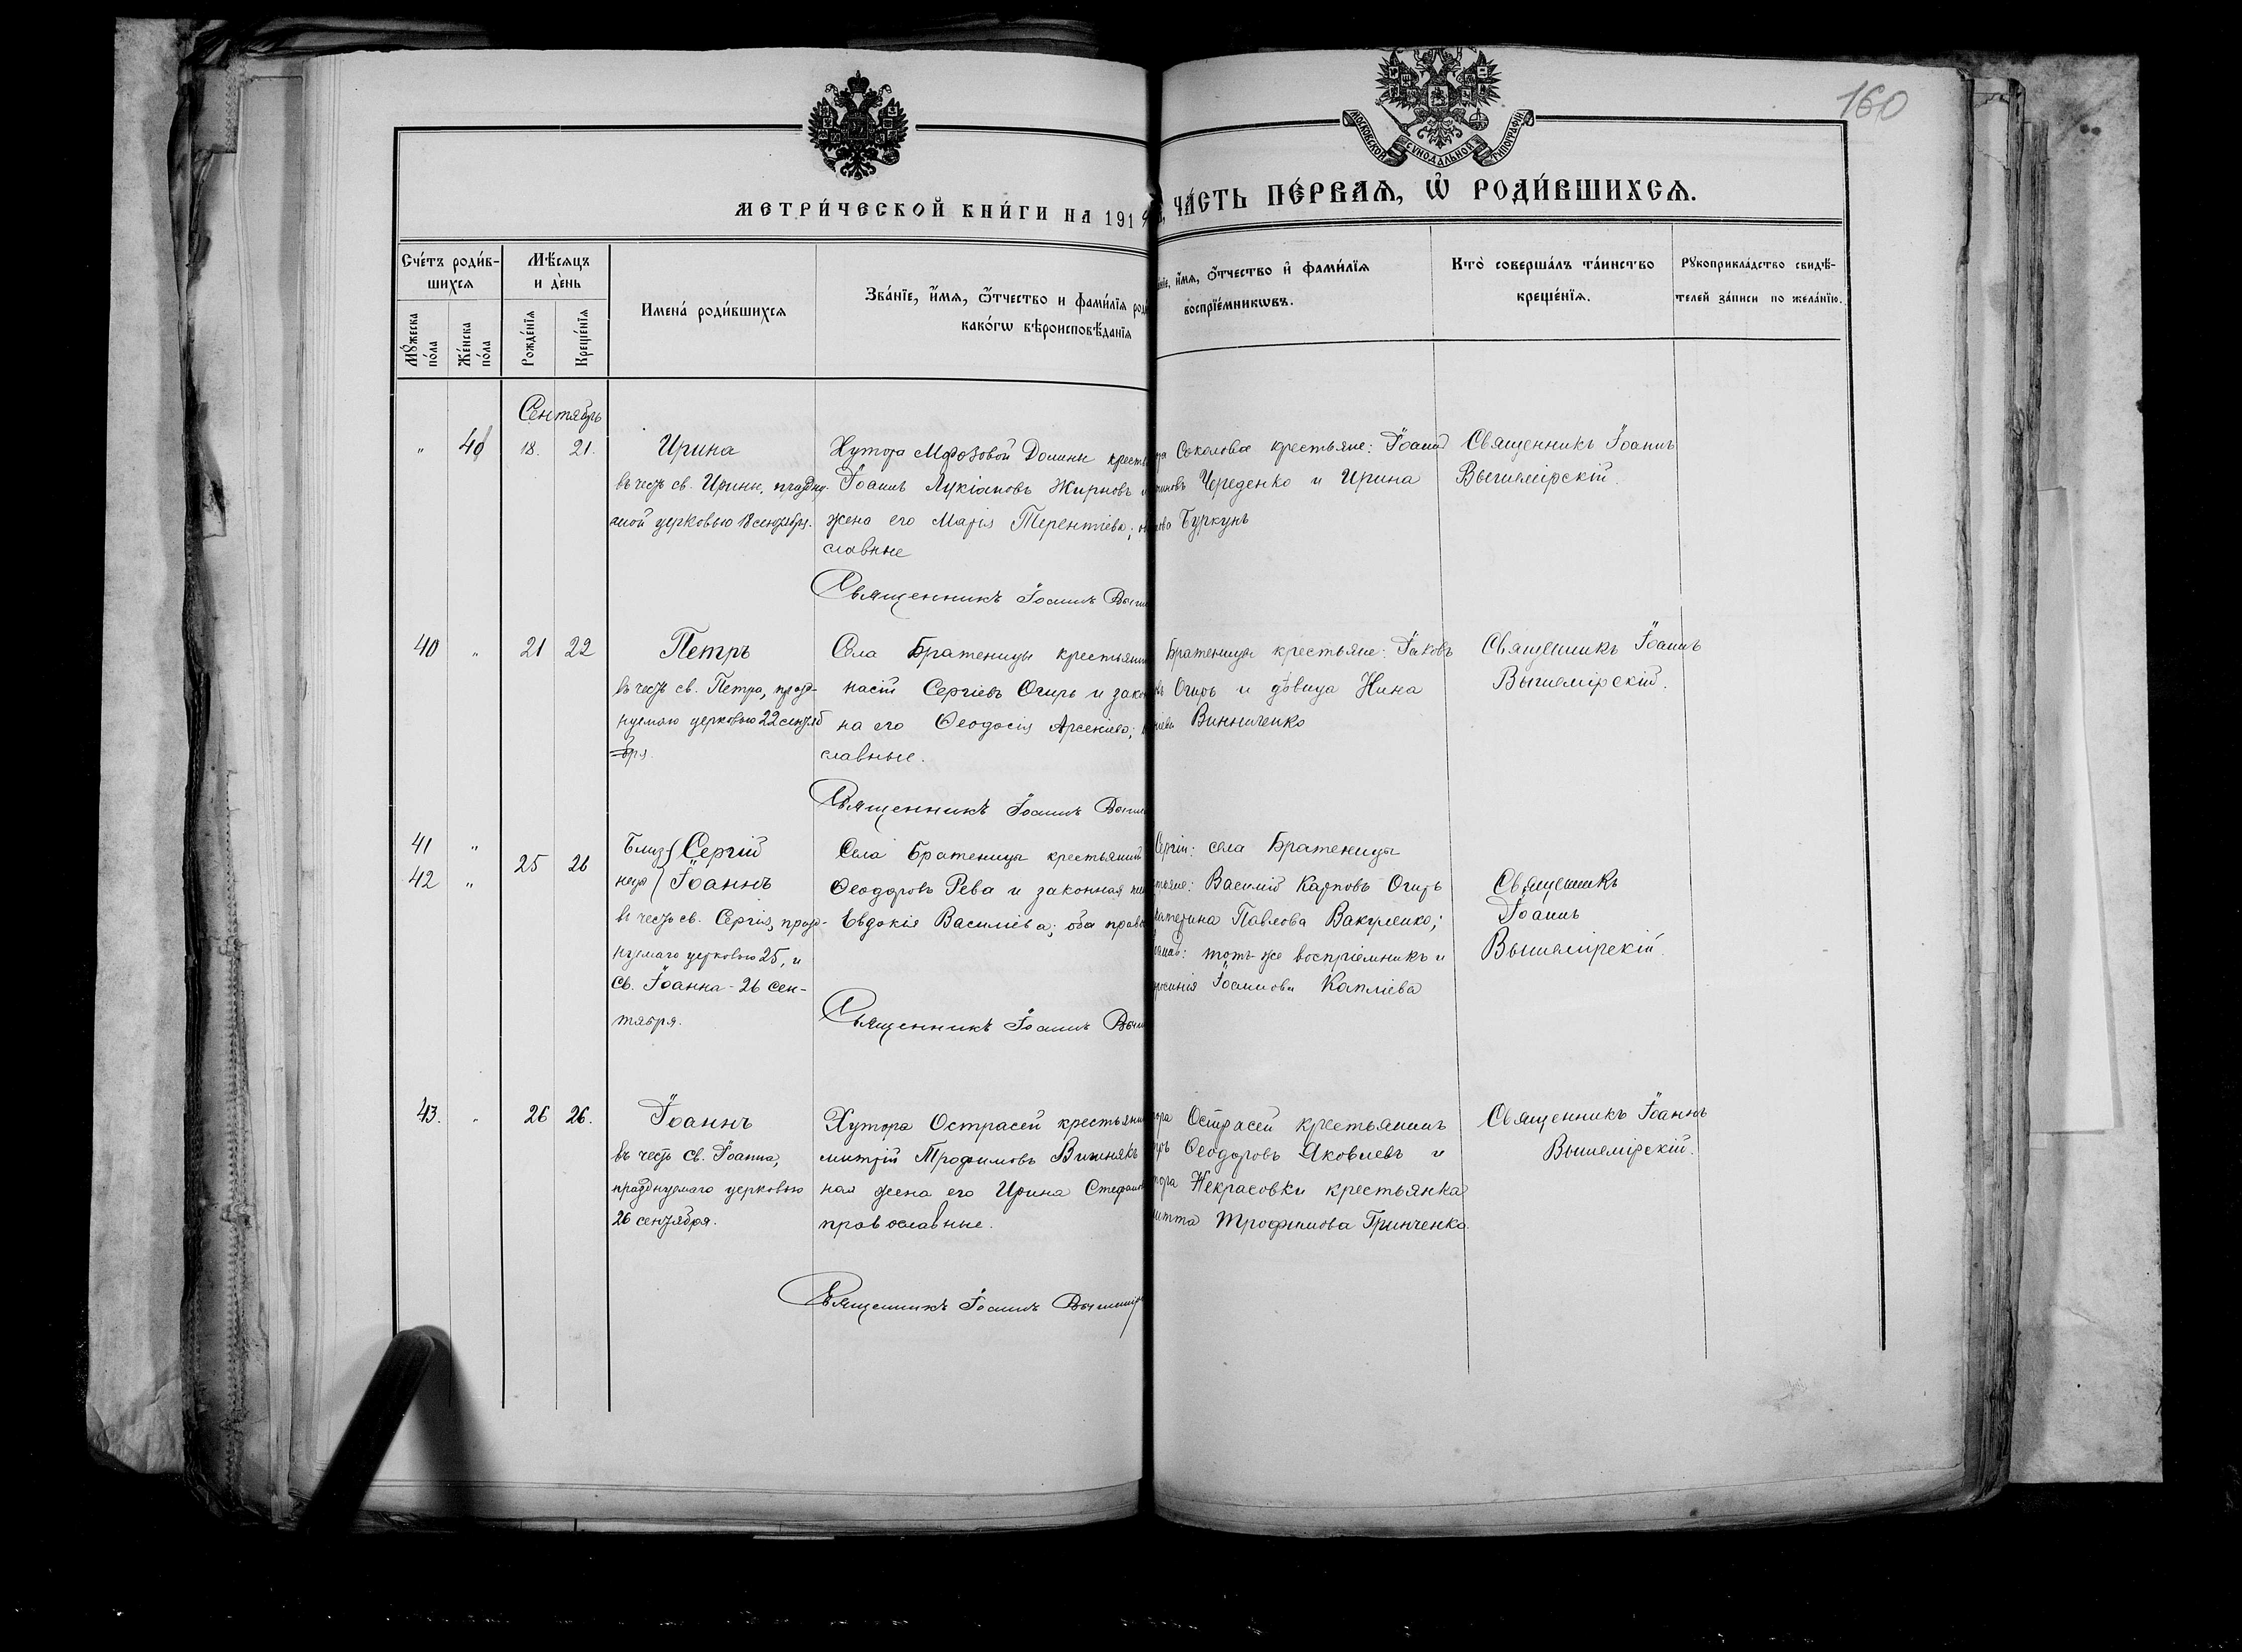 160
МОСКОВСКОЙ СУНОДАЛЬНОЙ ТИПОГРАФІИ
МЕТРИ́ЧЕСКОЙ КНИ́ГИ НА 191
ЧА́СТЬ ПЕ́РВАѦ, Ѡ҆ РОДИ́ВШИХСѦ.
Сче́тъ роди́в-
шихсѧ
Мꙋ́жеска по́ла
Же́нска по́ла
Мѣ́сѧцъ
и де́нь
Рожде́нїѧ
Креще́нїѧ
Имена̀ роди́вшихсѧ
Зва́нїе, и҆́мѧ, ѻ҆́тчество и фами́лїѧ
како́гѡ вѣроисповѣ́данїѧ
и҆́мѧ, ѻ҆́тчество и҆ фами́лїѧ
воспрїе́мникѡвъ.
Кто̀ соверша́лъ та́инство
креще́нїѧ.
Рꙋкоприкла́дство свидѣ́-
телей за́писи по жела́нїю.
Сентябрь
" 40 18. 21. Ирина
въ честь св. Ирины, праздну-
емой церковью 18 сентября.
Хутора Морозовой Долины
Іоаннъ Лукіановъ Жирновъ
жена его Марія Терентіева;
славные
Священникъ Іоаннъ
Соколова крестьяне: Іоаннъ
Череденко и Ирина
Буркунъ
Священникъ Іоаннъ
Вышемірскій.
40 " 21 22 Петръ
въ честь св. Петра, празд-
нуемаго церковью 22 сентяб
бря.
Села Братеницы
насій Сергіевъ Огирь и
на его Ѳеодосія Арсеніева;
славные.
Священникъ Іоаннъ
Братеницы крестьяне: Іаковъ
Огирь и дѣвица Нина
Винниченко
Священникъ Іоаннъ
Вышемірскій.
41 "
42 "
25 26
Близ- Сергій
нецы Іоаннъ
въ честь св. Сергія, празд-
нуемаго церковью 25, и
Св. Іоанна - 26 сен-
тября.
Села Братеницы крестьянинъ
Ѳеодоровъ Рева и законная
Евдокія Василіева; оба
Священникъ Іоаннъ
Сергія: села Братеницы
Василій Карповъ Огирь
Павлова Вакуленко;
тотъ-же воспріемникъ и
Іоаннова Капліева
Священникъ
Іоаннъ
Вышемірскій.
43. " 26 26. Іоаннъ
въ честь св. Іоанна,
празднуемаго церковью
26 сентября.
Хутора Острасей
митрій Трофимовъ Вишнякъ
ная жена его Ирина
православные.
Священникъ Іоаннъ
Острасей крестьянинъ
Ѳеодоровъ Яковлевъ и
Некрасовки крестьянка
Трофимова Гринченко.
Священникъ Іоаннъ
Вышемірскій.